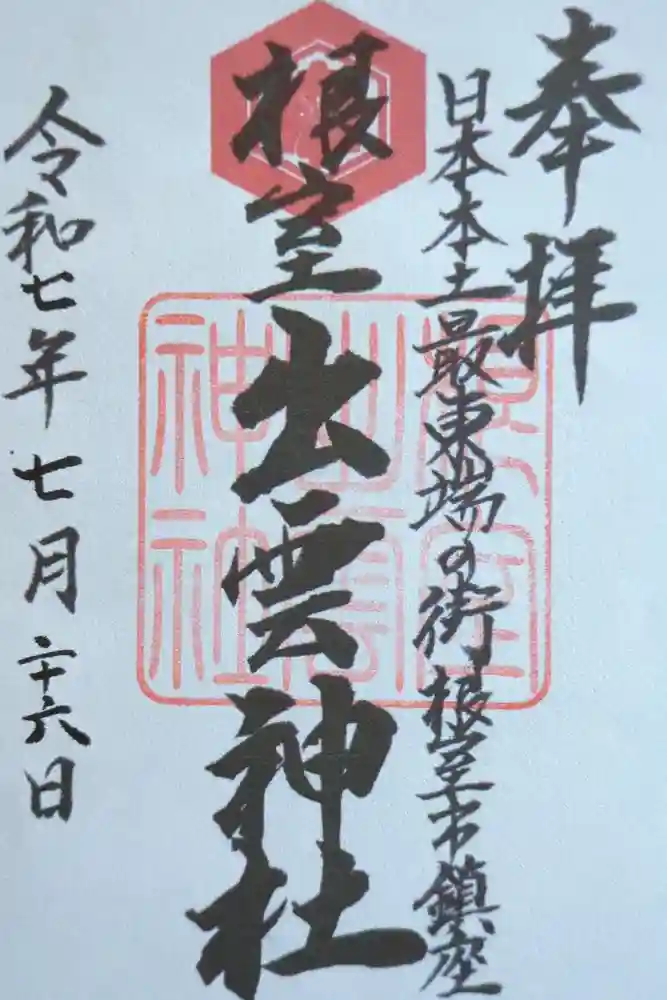 奉拝
日本本土最東端の街根室市鎮座
根室出雲神社
根室
出雲
神社
令和七年七月二十六日